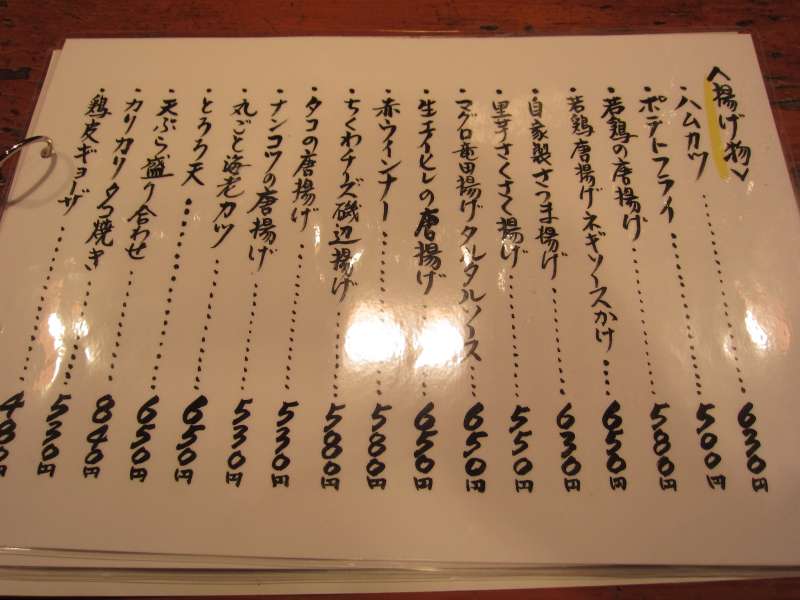 <揚げ物>
・ハムカツ 630円
・ポテトフライ 500円
・若鶏の唐揚げ 580円
・若鶏唐揚げネギソースかけ 650円
・自家製さつま揚げ 630円
・里芋さくさく揚げ 550円
・マグロ竜田揚げタルタルソース 650円
・生エイヒレの唐揚げ 650円
・赤ウインナー 580円
・ちくわチーズ磯辺揚げ 580円
・タコの唐揚げ 530円
・ナンコツの唐揚げ 530円
・丸ごと海老カツ 650円
・とろろ天 650円
・天ぷら盛り合わせ 840円
・カリカリタコ焼き 530円
・鶏皮ギョーザ 480円